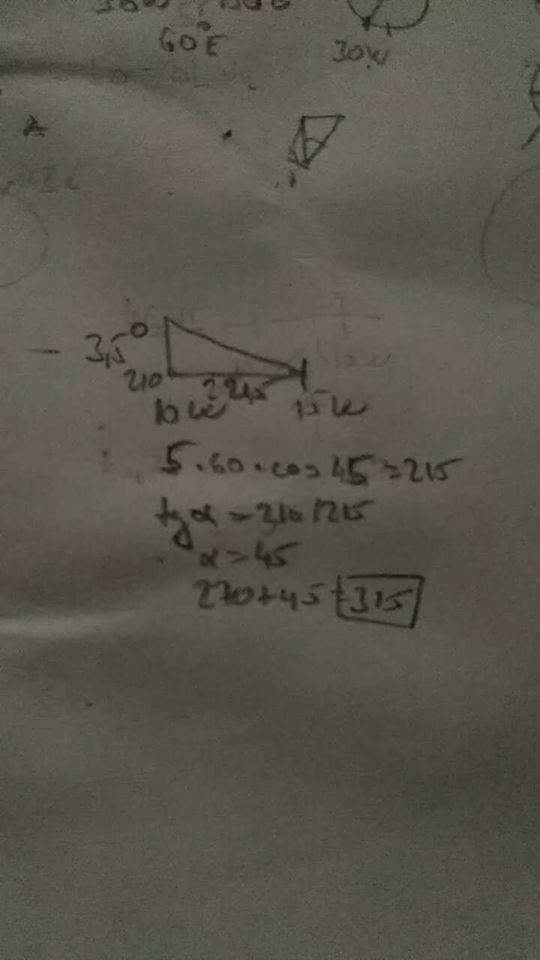 60°E
30W
A
3,5°
210
10W
15W
5.60.cos 45=215
tgα=210/215
α=45
270+45=315